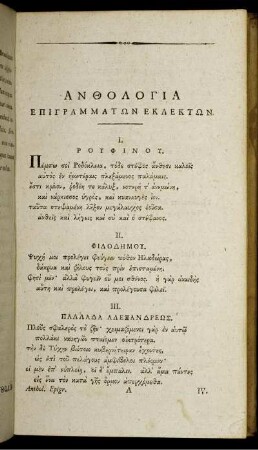 ΑΝΘΟΛΟΓΙΑ
ΕΠΙΓΡΑΜΜΑΤΩΝ ΕΚΛΕΚΤΩΝ.
I.
ΡΟΥΦΙΝΟΥ.
Πέμπω σοὶ Ῥοδόκλεια, τόδε στέφος ἄνθεσι καλοῖς
αὐτὸς ἐν ἡμετέραις πλεξάμενος παλάμαις.
ἔστι κρίνον, ῥοδέη τε κάλυξ, νοτερή τ' ἀνεμώνη,
καὶ νάρκισσος ὑγρὸς, καὶ κυαναυγὲς ἴον.
ταῦτα στεψαμένη λῆξον μεγάλαυχος ἐοῦσα.
ἀνθεῖς καὶ λήγεις καὶ σὺ καὶ ὁ στέφανος.
II.
ΦΙΛΟΔΗΜΟΥ.
Ψυχή μοι προλέγει φεύγειν πόθον Ἡλιοδώρας,
δάκρυα καὶ ζήλους τοὺς πρὶν ἐπισταμένη.
φησὶ μὲν· ἀλλὰ φυγεῖν οὔ μοι σθένος· ἡ γὰρ ἀναιδὴς
αὐτὴ καὶ προλέγει, καὶ προλέγουσα φιλεῖ.
III.
ΠΑΛΛΑΔΑ ΑΛΕΞΑΝΔΡΕΩΣ.
Πλοῦς σφαλερὸς τὸ ζῆν· χειμαζόμενοι γὰρ ἐν αὐτῷ
πολλάκι ναυηγῶν πταίομεν οἰκτρότερα.
τὴν δὲ Τύχην βιότοιο κυβερνήτειραν ἔχοντες,
ὡς ἐπὶ τοῦ πελάγους ἀμφίβολοι πλέομεν·
οἱ μὲν ἐπ' εὐπλοίην, οἱ δ' ἔμπαλιν. ἀλλ' ἅμα πάντες
εἰς ἕνα τὸν κατὰ γῆς ὅρμον ἀπερχόμεθα.
A
IV.